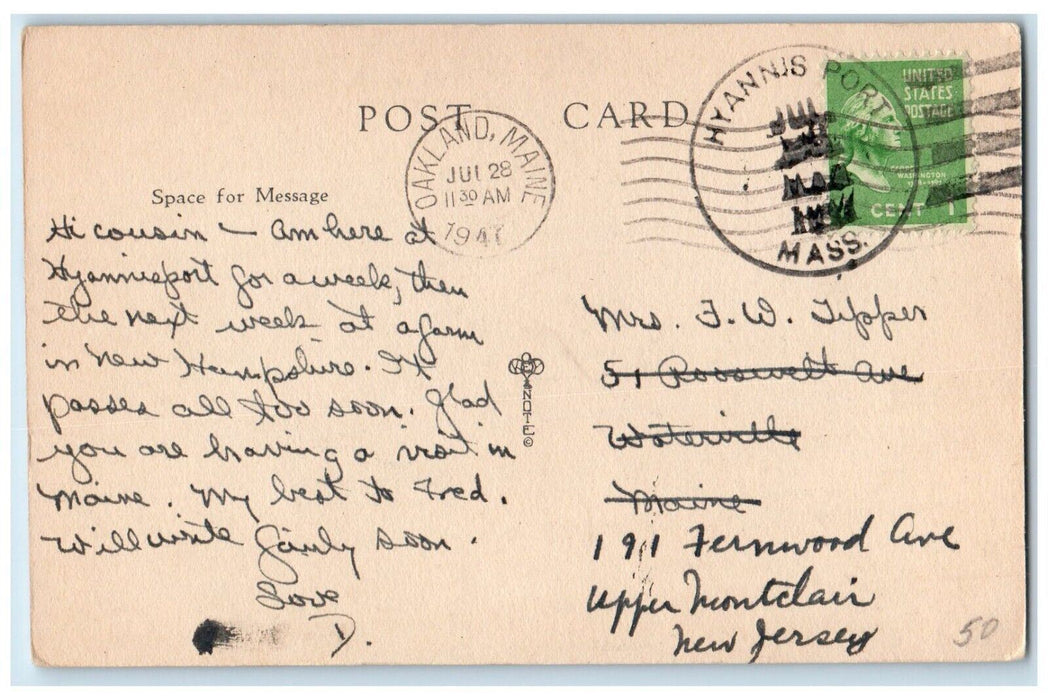 POST CARD
HYANNIS PORT
JUL
MASS.
UNITED
STATES
POSTAGE
WASHINGTON
CENT 1
OAKLAND, MAINE
JUL 28
11 30 AM
1941
Space for Message
Hi cousin – Am here at
Hyannisport for a week, then
the next week at a farm
in New Hampshire. It
passes all too soon. Glad
you are having a visit in
Maine. My best to Fred.
Will write fairly soon.
Love
D.
VYNOTE ©
Mrs. F. W. Tipper
51 Roosevelt Ave
Waterville
Maine
191 Fernwood Ave
Upper Montclair
New Jersey
50